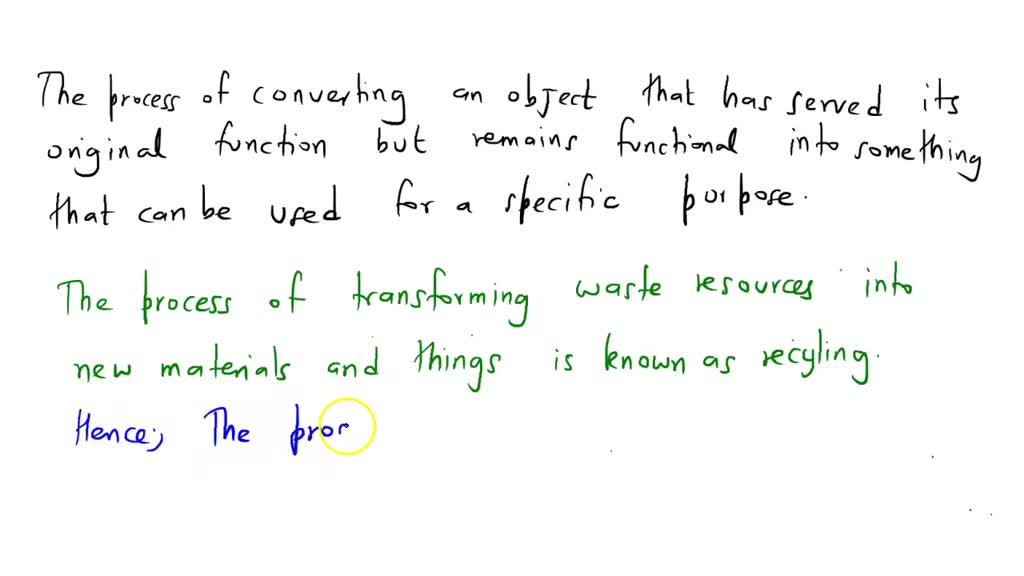 The process of converting an object that has served its
original function but remains functional into something
that can be used for a specific purpose.
The process of transforming waste resources into
new materials and things is known as recyling.
Hence; The pror